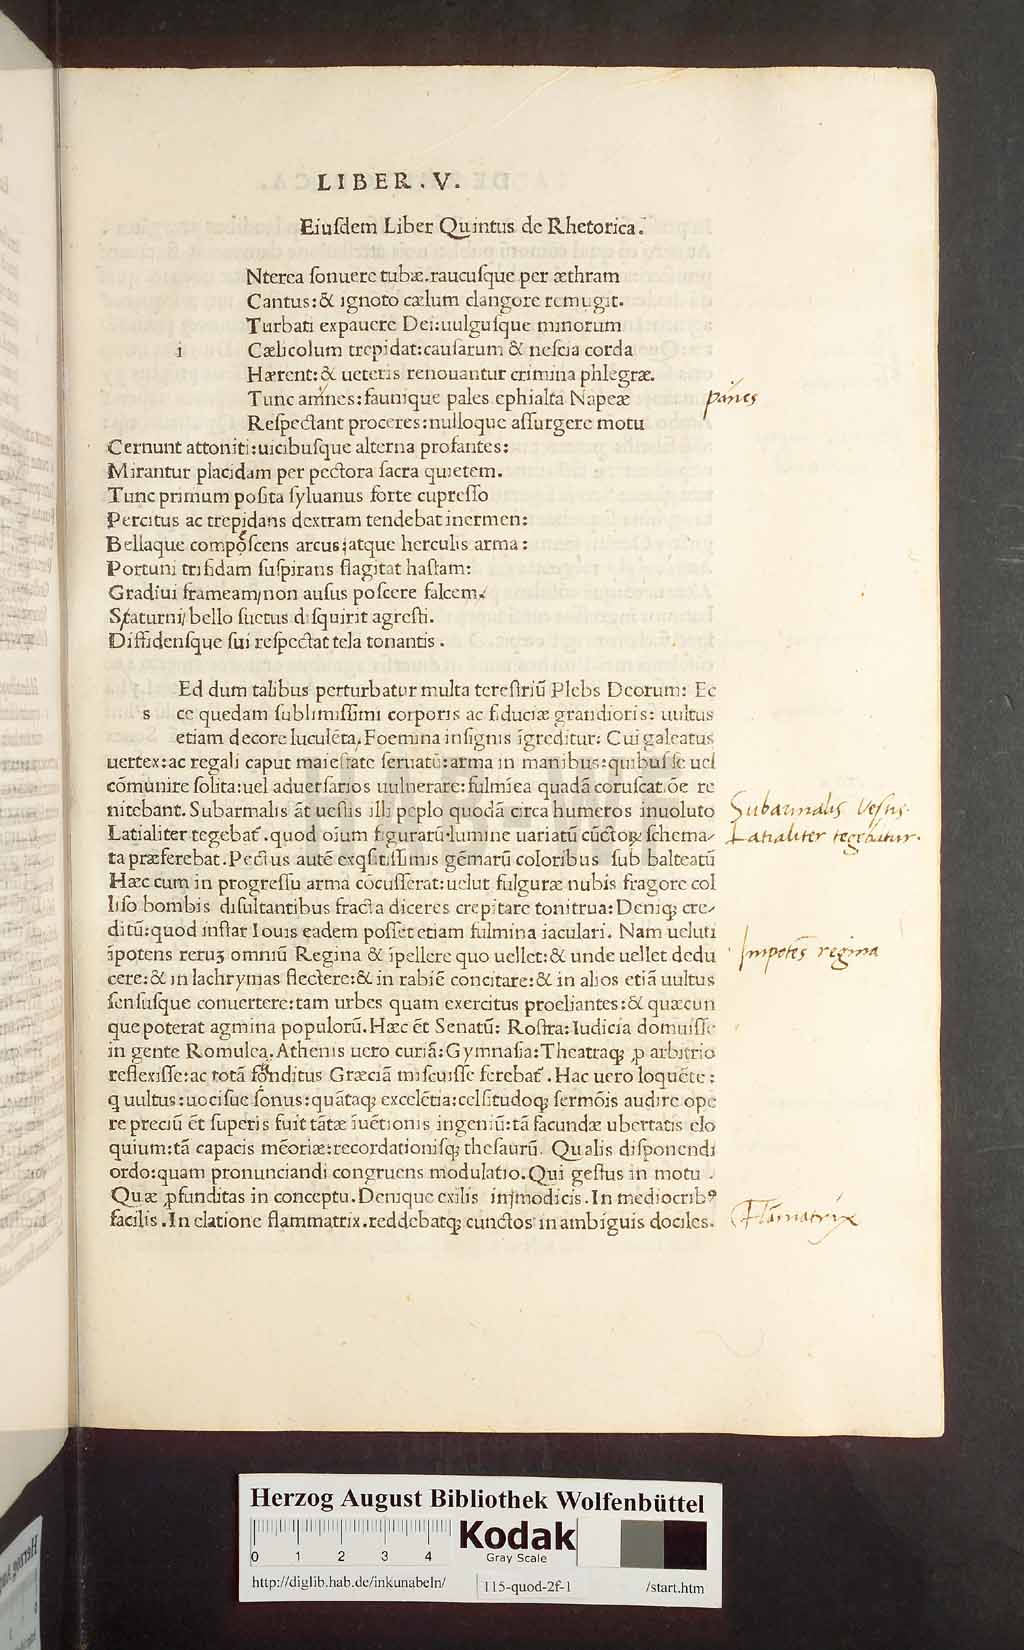 LIBER . V .
Eiuſdem Liber Quintus de Rhetorica.
Nterea ſonuere tubæ.raucuſque per æthram
Cantus:& ignoto cælum clangore remugit.
Turbati expauere Dei:uulguſque minorum
i Cælicolum trepidat:cauſarum & neſcia corda
Hærent:& ueteris renouantur crimina phlegræ.
Tunc amnes:faunique pales ephialta Napeæ
panes
Reſpectant proceres:nulloque aſſurgere motu
Cernunt attoniti:uicibuſque alterna profantes:
Mirantur placidam per pectora ſacra quietem.
Tunc primum poſita ſyluanus forte cupreſſo
Percitus ac trepidans dextram tendebat inermen:
Bellaque compoſcens arcus:atque herculis arma:
Portuni trifidam ſuſpirans flagitat haſtam:
Gradiui frameam/non auſus poſcere falcem.
Staturni/bello ſuetus diſquirit agreſti.
Diffidenſque ſui reſpectat tela tonantis .
Ed dum talibus perturbatur multa tereſtriū Plebs Deorum: Ec
s ce quedam ſublimiſſimi corporis ac fiduciæ grandioris: uultus
etiam decore luculēta. Foemina inſignis īgreditur: Cui galeatus
uertex:ac regali caput maieſtate ſeruatū:arma in manibus:quibus ſe uel
cōmunire ſolita:uel aduerſarios uulnerare:fulmīea quadā coruſcatiōe re
nitebant. Subarmalis āt ueſtis illi peplo quodā circa humeros inuoluto
Subarmalis Vesus.
Latialiter tegebat̄.quod oīum figurarū lumine uariatū cūctoꝝ ſchema-
Latialiter tegebatur.
ta præferebat.Pectus autē exqſitiſſimis gēmarū coloribus ſub balteatū
Hæc cum in progreſſu arma cōcuſſerat:uelut fulguræ nubis fragore col
liſo bombis diſultantibus fracta diceres crepitare tonitrua: Deniqꝫ cre-
ditū:quod inſtar Iouis eadem poſſet etiam fulmina iaculari. Nam ueluti
īpotens reruꝫ omniū Regina & īpellere quo uellet:& unde uellet dedu
Impotēs regina
cere:& in lachrymas flectere:& in rabiē concitare:& in alios etiā uultus
ſenſuſque conuertere:tam urbes quam exercitus proeliantes:& quæcun
que poterat agmina populorū.Hæc ēt Senatū: Roſtra: Iudicia domuiſſe
in gente Romulea.Athenis uero curiā:Gymnaſia:Theatraqꝫ ꝓ arbitrio
reflexiſſe:ac totā fonditus Græciā miſcuiſſe ferebat̄. Hac uero loquēte:
q uultus:uociſue ſonus:quātaqꝫ excelētia:celſitudoqꝫ ſermōis audire ope
re preciū ēt ſuperis fuit tātæ īuētionis ingeniū:tā facundæ ubertatis elo
quium:tā capacis mēoriæ:recordationiſqꝫ theſaurū. Qualis diſponendi
ordo:quam pronunciandi congruens modulatio.Qui geſtus in motu .
Quæ ꝓfunditas in conceptu.Denique exilis in modicis.In mediocribꝰ
facilis.In elatione flammatrix.reddebatqꝫ cunctos in ambiguis dociles.
Flāmatrix
Herzog August Bibliothek Wolfenbüttel
0 1 2 3 4
Kodak
Gray Scale
http://diglib.hab.de/inkunabeln/ 115-quod-2f-1 /start.htm